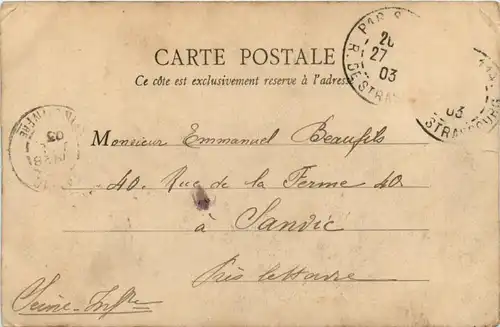 CARTE POSTALE
Ce côté est exclusivement reserve à l'adresse
PARIS
26
27
03
R. DE STRASBOURG
03
STRASBOURG
03
Monsieur Emmanuel Beaufils
40. Rue de la Ferme 40
à
Sanvic
Près le Havre
Seine-Infre